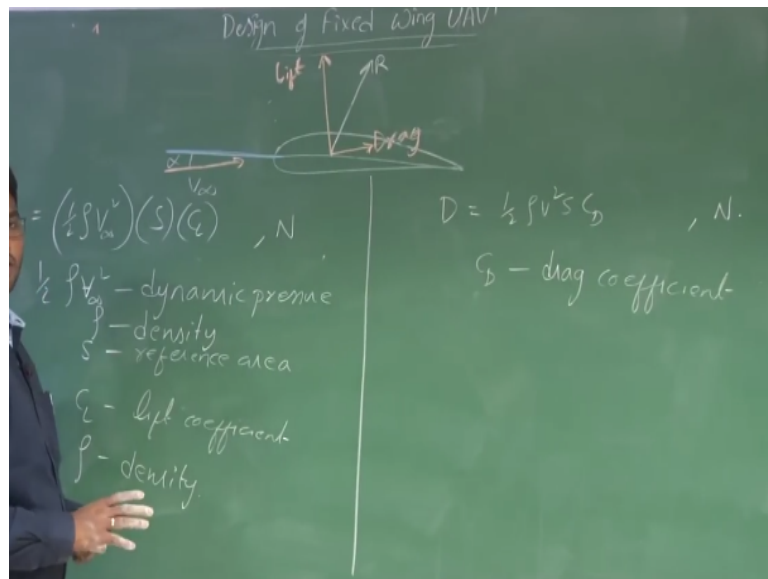 Design of Fixed Wing UAV
Lift
R
Drag
α
V∞
= (½ ρV∞²)(S)(C_L) , N
½ ρV∞² – dynamic pressure
ρ – density
S – reference area
C_L – lift coefficient
ρ – density.
D = ½ ρV²S C_D , N.
C_D – drag coefficient